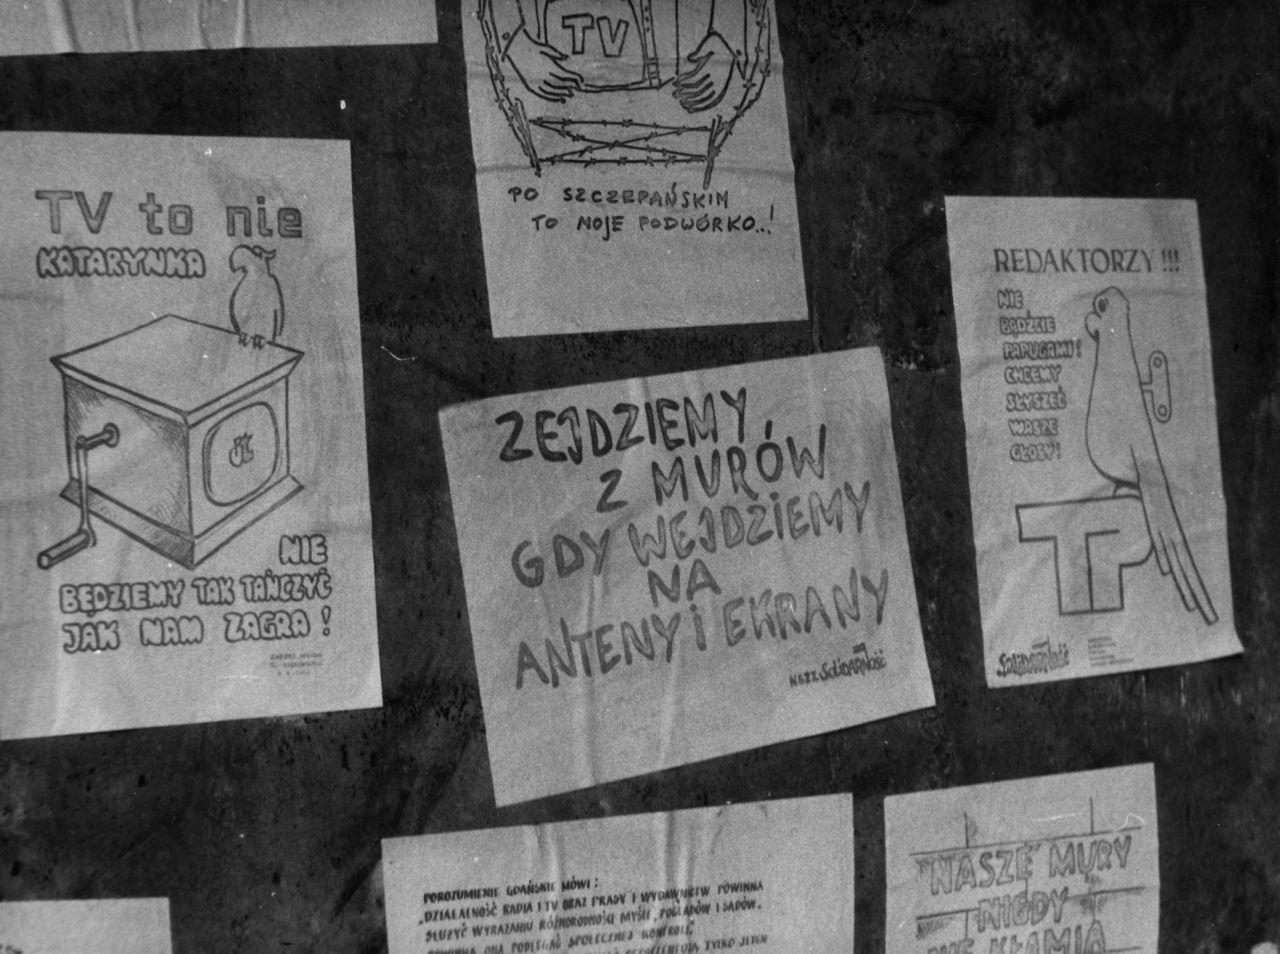 TV
PO SZCZEPAŃSKIM
TO MOJE PODWÓRKO..!
TV to nie
KATARYNKA
NIE
BĘDZIEMY TAK TAŃCZYĆ
JAK NAM ZAGRA!
REDAKTORZY!!!
NIE
BĄDŹCIE
PAPUGAMI!
CHCEMY
SŁYSZEĆ
WASZE
GŁOSY!
TP
Solidarność
ZEJDZIEMY
Z MURÓW
GDY WEJDZIEMY
NA
ANTENY i EKRANY
NSZZ Solidarność
POROZUMIENIE GDAŃSKIE MÓWI:
"DZIAŁALNOŚĆ RADIA I TV ORAZ PRASY I WYDAWNICTW POWINNA
SŁUŻYĆ WYRAŻANIU RÓŻNORODNOŚCI MYŚLI, POGLĄDÓW I SĄDÓW.
POWINNA ONA PODLEGAĆ SPOŁECZNEJ KONTROLI."
TYLKO JEDEN
"NASZE" MURY
NIGDY
NIE KŁAMIĄ